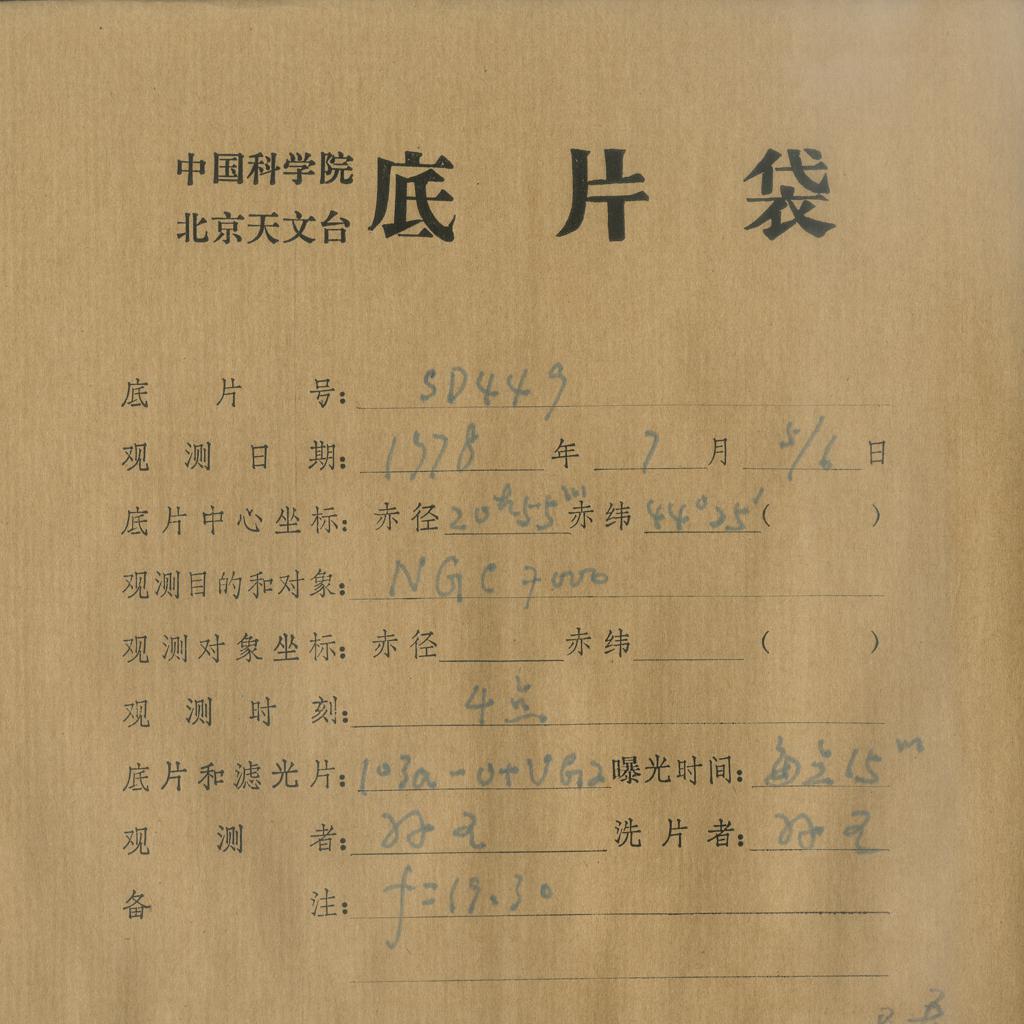 中国科学院
北京天文台
底片袋
底片号：SD449
观测日期：1978年7月5/6日
底片中心坐标：赤径20h55m赤纬44°25′（ ）
观测目的和对象：NGC7000
观测对象坐标：赤径 赤纬 （ ）
观测时刻：4点
底片和滤光片：103a-O+UG2曝光时间：每点15m
观测者： 洗片者：
备注：f=19.30